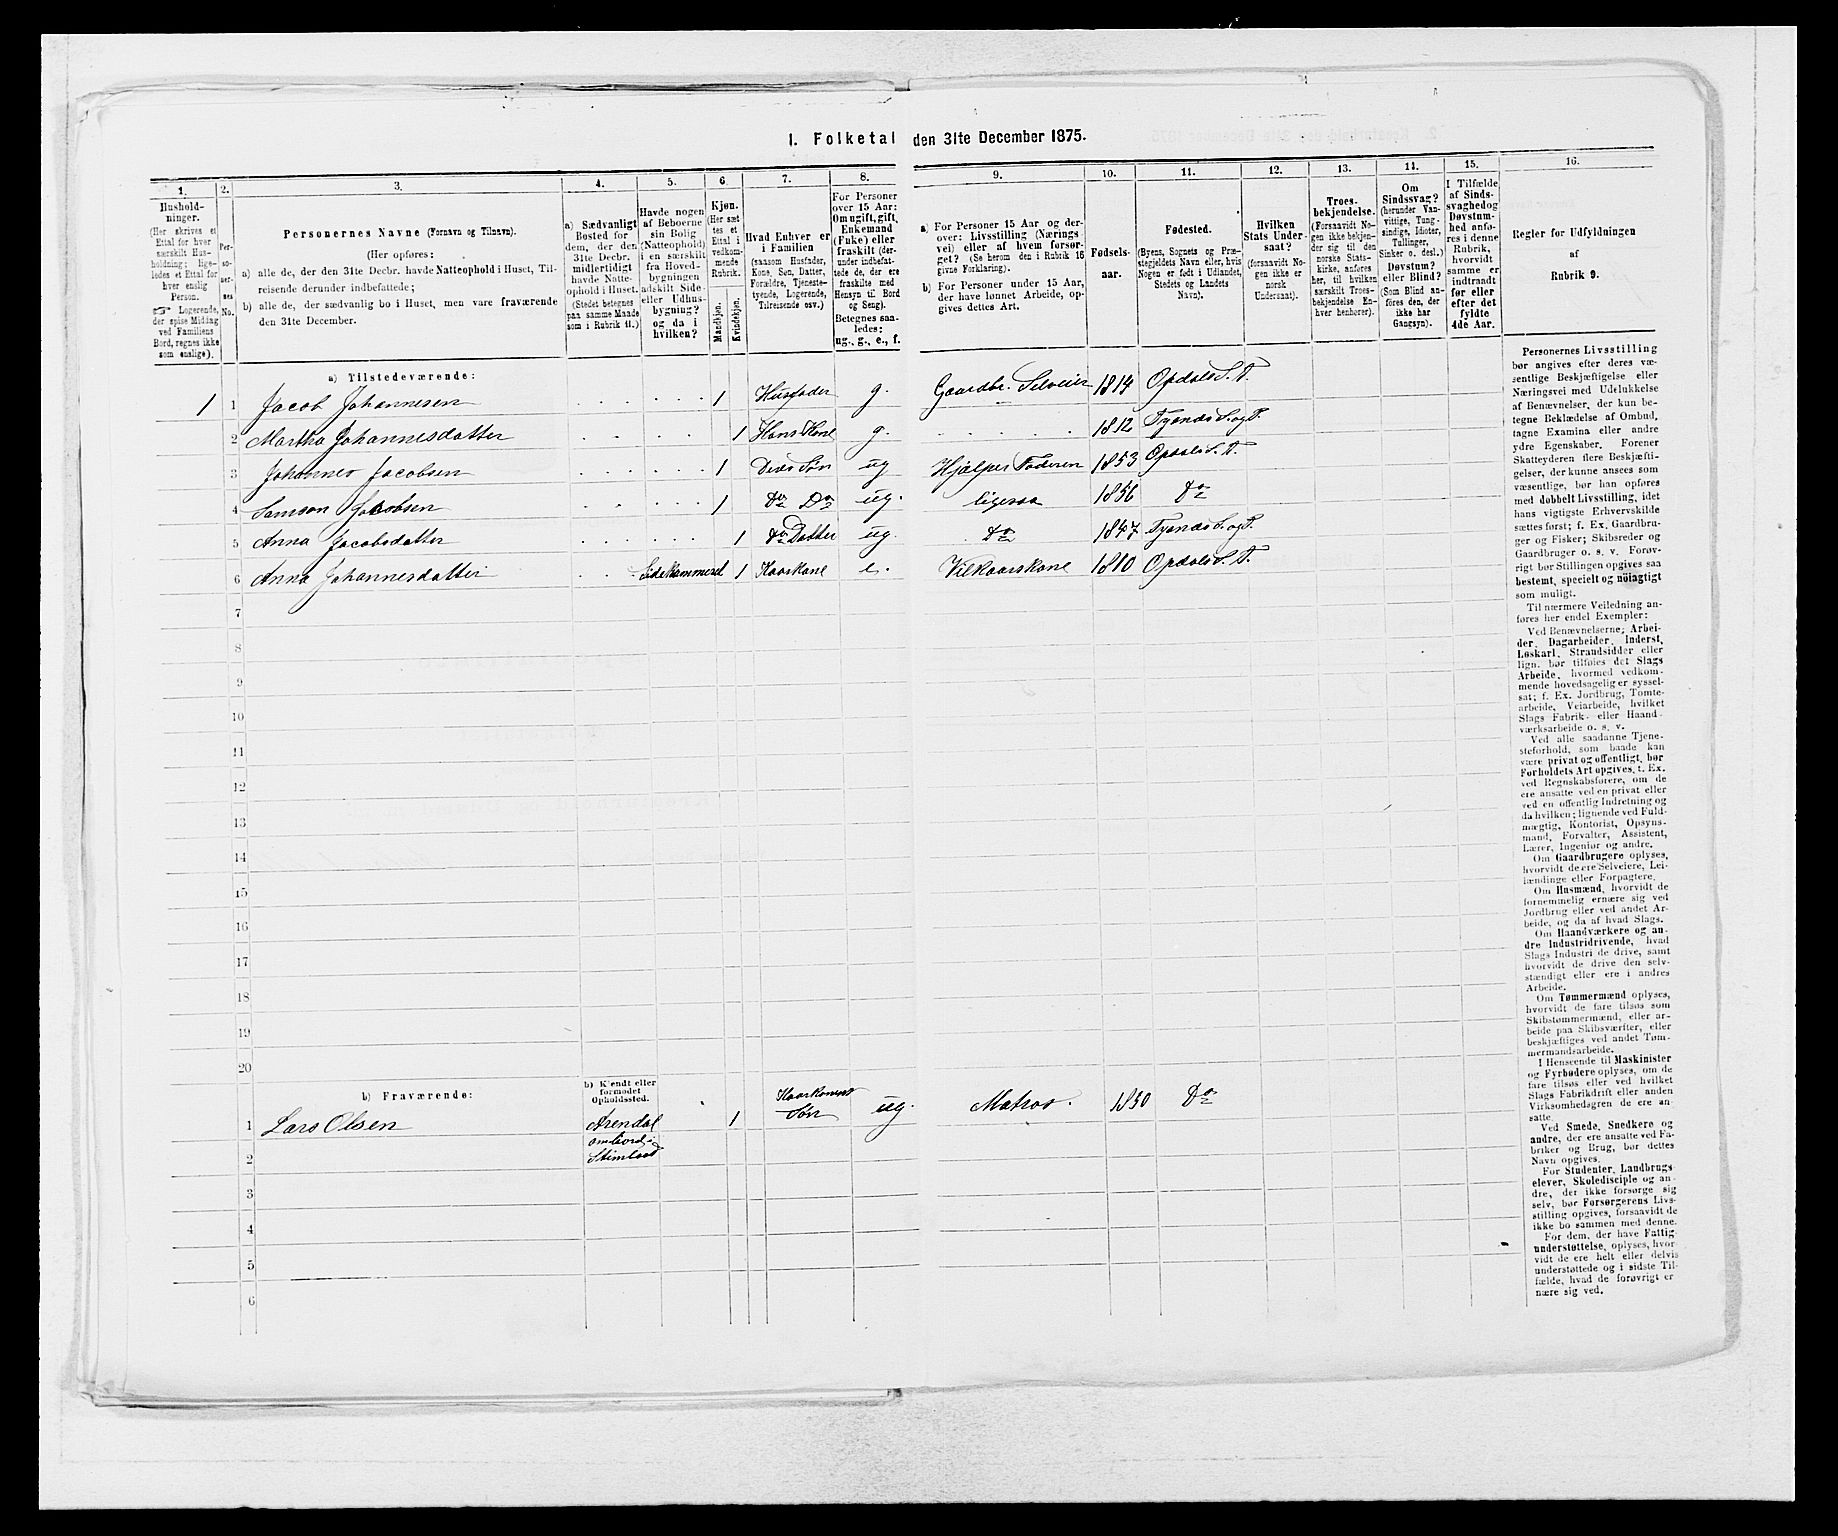 I. Folketal den 31te December 1875.
1. 2. 3. 4. 5. 6. 7. 8. 9. 10. 11. 12. 13. 14. 15. 16.
Hushold-
ninger.
(Her skrives et
Ettal for hver
særskilt Hus-
holdning; lige-
ledes et Ettal for
hver enslig
Person.
☞ Logerende,
der spise Middag
ved Familiens
Bord, regnes ikke
som enslige).
Per-
so-
ner-
nes
No.
Personernes Navne (Fornavn og Tilnavn).
(Her opføres:
a) alle de, der den 31te Decbr. havde Natteophold i Huset, Til-
reisende derunder indbefattede;
b) alle de, der sædvanlig bo i Huset, men vare fraværende
den 31te December.
a) Sædvanligt
Bosted for
dem, der den
31te Decbr.
midlertidigt
havde Natte-
ophold i Huset.
(Stedet betegnes
paa samme Maade
som i Rubrik 11.)
Havde nogen
af Beboerne
sin Bolig
(Natteophold)
i en særskilt
fra Hoved-
bygningen
adskilt Side-
eller Udhus-
bygning?
og da i
hvilken?
Kjøn.
(Her sæt-
tes et
Ettal i
vedkom-
mende
Rubrik.
Mandkjøn.
Kvindekjøn.
Hvad Enhver er
i Familien
(saasom Husfader,
Kone, Søn, Datter,
Forældre, Tjeneste-
tyende, Logerende,
Tilreisende osv.)
For Personer
over 15 Aar:
Om ugift, gift,
Enkemand
(Enke) eller
fraskilt (der-
under indbefat-
tede de, der ere
fraskilte med
Hensyn til Bord
og Seng).
Betegnes saa-
ledes:
ug., g., e., f.
a) For Personer 15 Aar og der-
over: Livsstilling (Nærings-
vei) eller af hvem forsør-
get? (Se herom den i Rubrik 16
givne Forklaring).
b) For Personer under 15 Aar,
der have lønnet Arbeide, op-
gives dettes Art.
Fødsels-
aar.
Fødested.
(Byens, Sognets og Præ-
stegjeldets Navn eller, hvis
Nogen er født i Udlandet,
Stedets og Landets
Navn).
Hvilken
Stats Under-
saat?
(forsaavidt No-
gen ikke er
norsk
Undersaat).
Troes-
bekjendelse.
(Forsaavidt No-
gen ikke bekjen-
der sig til den
norske Stats-
kirke, anføres
her, til hvilken
særskilt Troes-
bekjendelse En-
hver henhører).
Om
Sindssvag?
(herunder Van-
vittige, Tung-
sindige, Idioter,
Tullinger,
Sinker o. desl.)
Døvstum?
eller Blind?
(Som Blind an-
føres den, der
ikke har
Gangsyn).
I Tilfælde
af Sinds-
svaghed og
Døvstum-
hed anfø-
res i denne
Rubrik,
hvorvidt
samme er
indtraadt
før eller
efter det
fyldte
4de Aar.
Regler for Udfyldningen
af
Rubrik 9.
a) Tilstedeværende:
1 1 Jacob Johannesen 1 Husfader g. Gaardbr. Selveier 1814 Opdals S. T.
2 Martha Johannesdatter 1 Hans Kone g. 1812 Tysnæs S. og P.
3 Johannes Jacobsen 1 Deres Søn ug Hjælper Faderen 1853 Opdals S. T.
4 Samson Jacobsen 1 Do Do ug. ligesaa 1856 Do
5 Anna Jacobsdatter 1 Do Datter ug. Do 1847 Tysnæs S. og P.
6 Anna Johannesdatter Sidekammeret 1 Kaarkone e. Vilkaarskone 1810 Opdals S. T.
7
8
9
10
11
12
13
14
15
16
17
18
19
20
b) Fraværende:
b) Kjendt eller
formodet
Opholdssted.
1 Lars Olsen Arendal 1 Kaarkonens Søn ug. Matros. 1850 Do
ombord i
2 Stimbaad
3
4
5
6
Personernes Livsstilling
bør angives efter deres væ-
sentlige Beskjæftigelse eller
Næringsvei med Udelukkelse
af Benævnelser, der kun be-
tegne Beklædelse af Ombud,
tagne Examina eller andre
ydre Egenskaber. Forener
Skatteyderen flere Beskjæfti-
gelser, der kunne ansees som
væsentlige, bør han opføres
med dobbelt Livsstilling, idet
hans vigtigste Erhvervskilde
sættes først; f. Ex. Gaardbru-
ger og Fisker; Skibsreder og
Gaardbruger o. s. v. Forøv-
rigt bør Stillingen opgives saa
bestemt, specielt og nöiagtigt
som muligt.
Til nærmere Veiledning an-
føres her endel Exempler:
Ved Benævnelserne; Arbei-
der, Dagarbeider, Inderst,
Løskarl, Strandsidder eller
lign. bør tilføies det Slags
Arbeide, hvormed vedkom-
mende hovedsagelig er syssel-
sat; f. Ex. Jordbrug, Tomte-
arbeide, Veiarbeide, hvilket
Slags Fabrik- eller Haand-
værksarbeide o. s. v.
Ved alle saadanne Tjene-
steforhold, som baade kan
være privat og offentligt, bør
Forholdets Art opgives, t. Ex.
ved Regnskabsførere, om de
ere ansatte ved en privat eller
ved en offentlig Indretning og
da hvilken; lignende ved Fuld-
mægtig, Kontorist, Opsyns-
mand, Forvalter, Assistent,
Lærer, Ingeniør og andre.
Om Gaardbrugere oplyses,
hvorvidt de ere Selveiere, Lei-
lændinge eller Forpagtere.
Om Husmænd, hvorvidt de
fornemmelig ernære sig ved
Jordbrug eller ved andet Ar-
beide, og da af hvad Slags.
Om Haandværkere og an-
dre Industridrivende, hvad
Slags Industri de drive, samt
hvorvidt de drive den selv-
stændigt eller ere i andres
Arbeide.
Om Tømmermænd oplyses,
hvorvidt de fare tilsøs som
Skibstømmermænd, eller ar-
beide paa Skibsværfter, eller
beskjæftiges ved andet Tøm-
mermandsarbeide.
I Henseende til Maskinister
og Fyrbødere oplyses, om de
fare tilsøs eller ved hvilket
Slags Fabrikdrift eller anden
Virksomhedsgren de ere an-
satte.
Ved Smede, Snedkere og
andre, der ere ansatte ved Fa-
briker og Brug, bør dettes
Navn opgives.
For Studenter, Landbrugs-
elever, Skoledisciple og an-
dre, der ikke forsørge sig
selv, bør Forsørgerens Livs-
stilling opgives, forsaavidt de
ikke bo sammen med denne.
For dem, der have Fattig-
understøttelse, oplyses, hvor-
vidt de ere helt eller delvis
understøttede og i sidste Til-
fælde, hvad de forøvrigt er
nære sig ved.